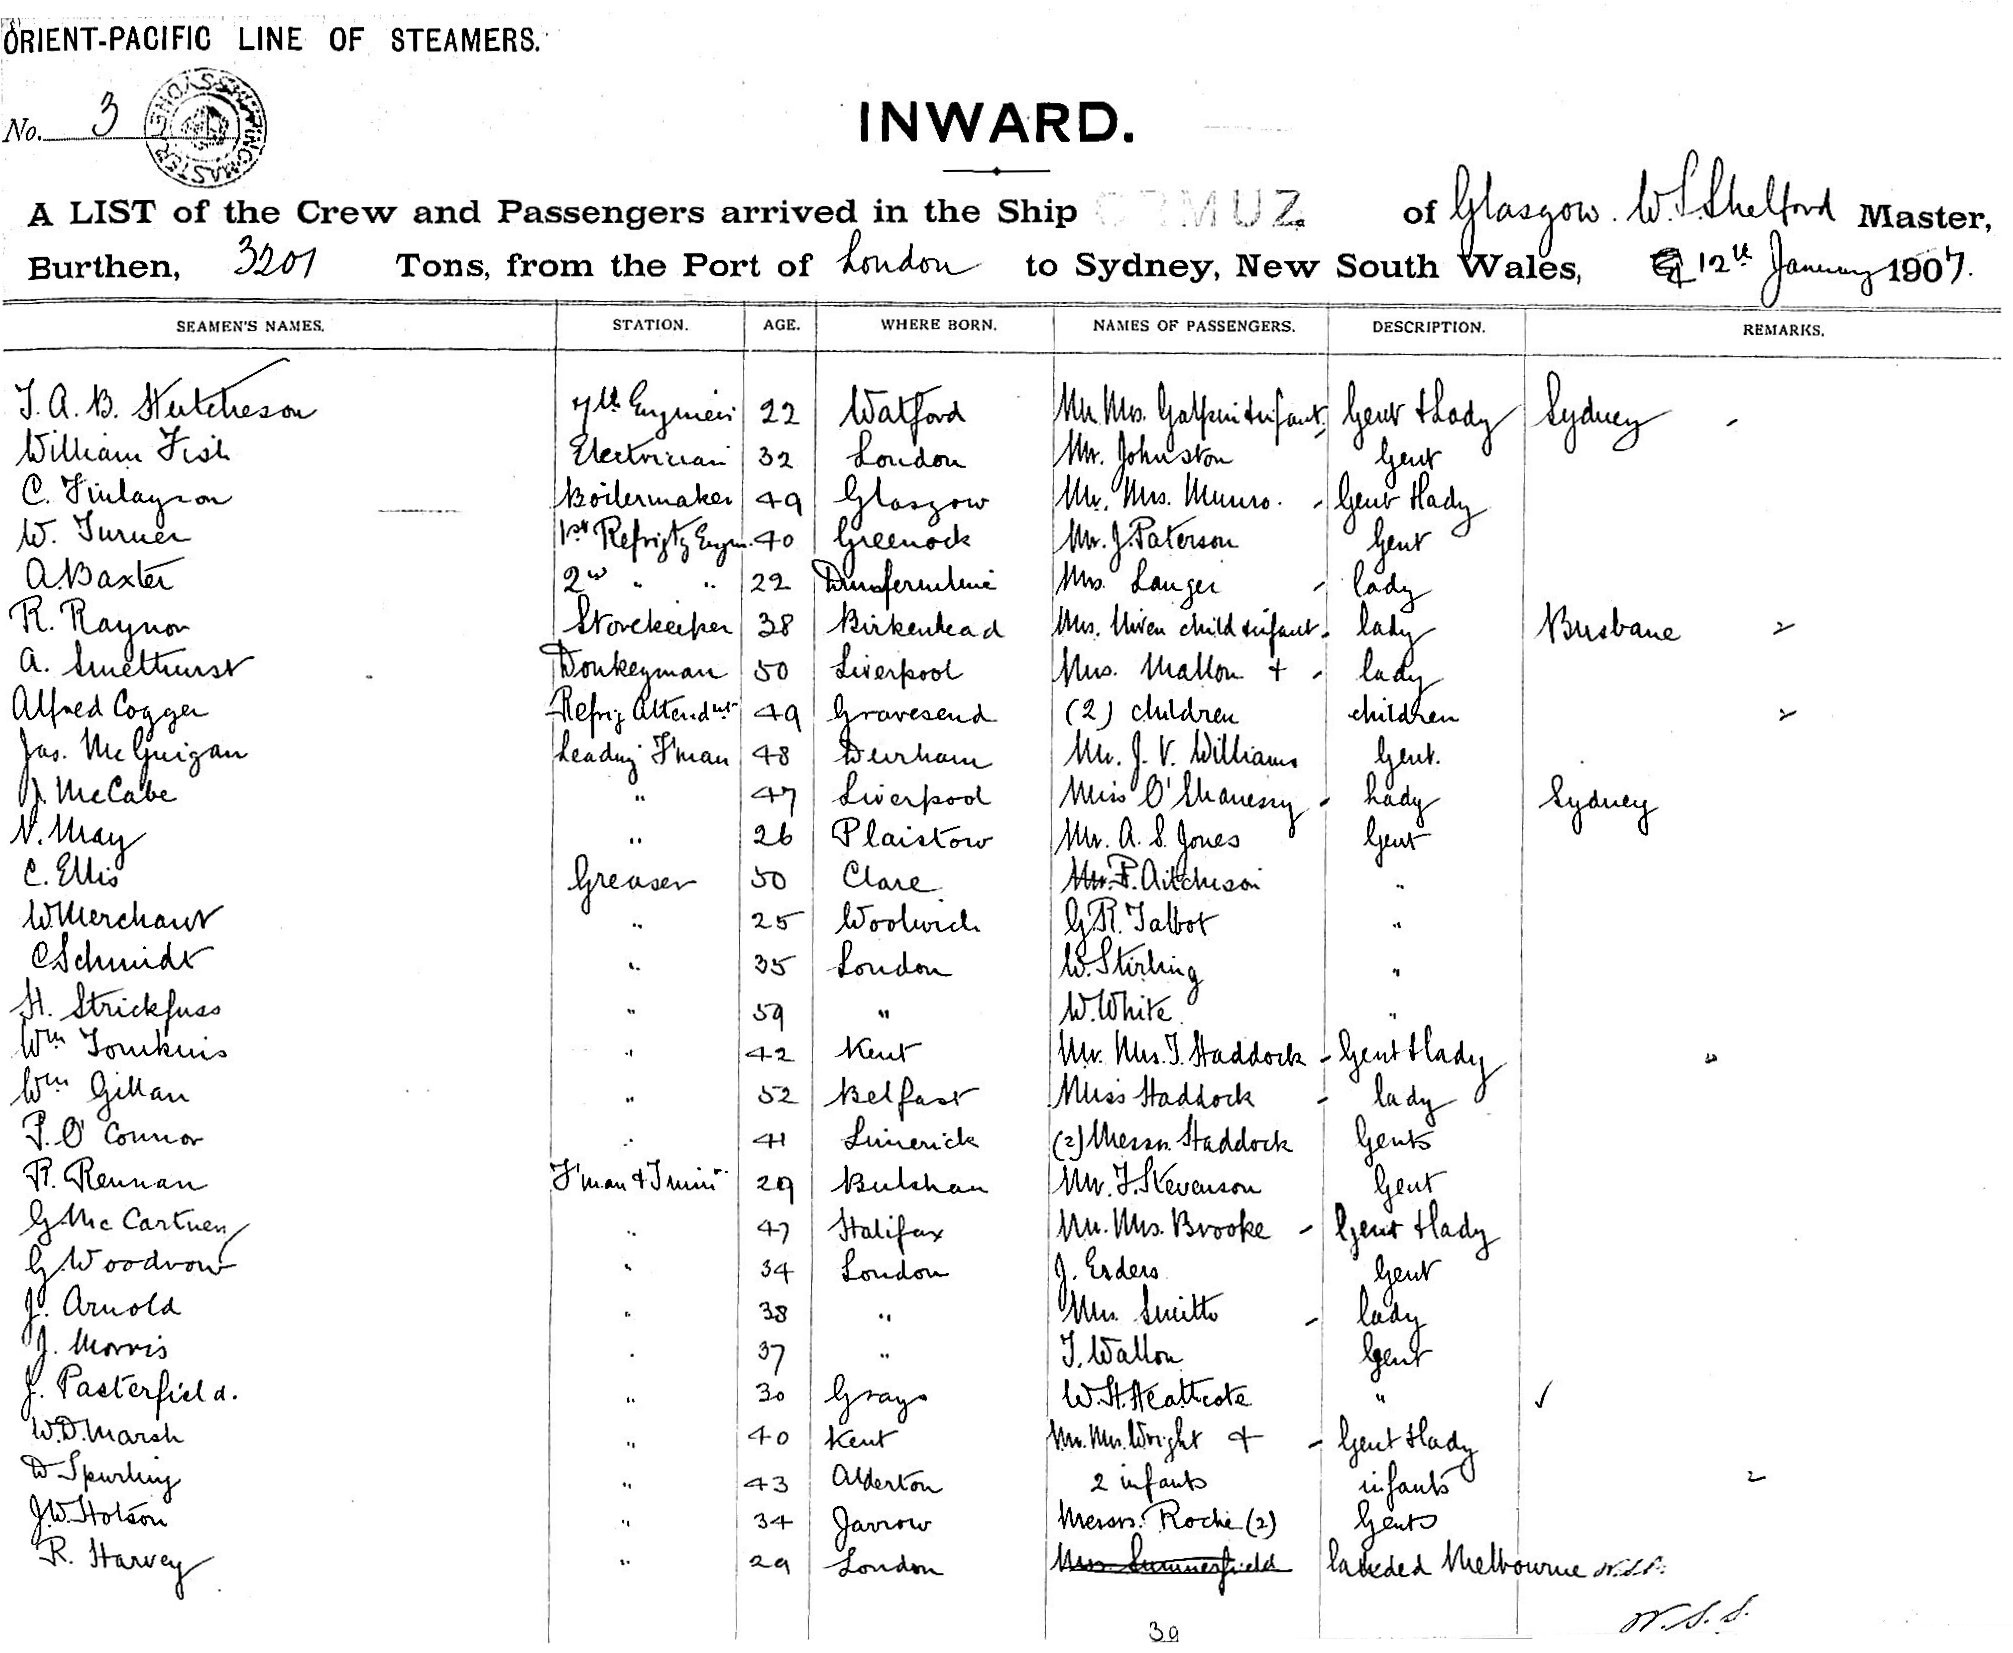 ORIENT-PACIFIC LINE OF STEAMERS.
No. 3
SHIPPING MASTER SYDNEY
INWARD.
A LIST of the Crew and Passengers arrived in the Ship ORMUZ of Glasgow. W.S. Shelford Master,
Burthen, 3201 Tons, from the Port of London to Sydney, New South Wales, 12th January 1907.
SEAMEN'S NAMES. STATION. AGE. WHERE BORN. NAMES OF PASSENGERS. DESCRIPTION. REMARKS.
T. A. B. Hutcheson 7th Engineer 22 Watford Mr. Mrs. Galpin & infant, Gent & Lady Sydney
William Fish Electrician 32 London Mr. Johnston Gent
C. Finlayson Boilermaker 49 Glasgow Mr. Mrs. Munro. - Gent & lady
W. Turner 1st Refrigtg Engnr. 40 Greenock Mr. J. Paterson Gent
A Baxter 2nd " " 22 Dunfermline Mrs. Langer - lady
R. Raynor Storekeeper 38 Birkenhead Mrs. Niven child & infant - lady Brisbane 2
A. Smethurst Donkeyman 50 Liverpool Mrs. Mallon + - lady
Alfred Cogger Refrig Attendnt 49 Gravesend (2) children children 2
Jas. McGuigan Leading F'man 48 Durham Mr. J. V. Williams Gent.
J. McCabe " 47 Liverpool Miss O'Shanessy - Lady Sydney
N. May " 26 Plaistow Mr. A. S. Jones Gent
C. Ellis Greaser 50 Clare Mr. F. Aitchison "
W Merchant " 25 Woolwich G.R. Talbot "
C Schmidt " 35 London W. Stirling "
H. Strickfuss " 59 " W. White "
Wm Tomkins " 42 Kent Mr. Mrs. T. Haddock - Gent & lady "
Wm Gillan " 52 Belfast Miss Haddock - lady
P. O'Connor " 41 Limerick (2) Messrs. Haddock Gents
R. Rennan F'man & Trimr 29 Mr. F. Stevenson Gent
G McCartney " 47 Halifax Mr. Mrs. Brooke - Gent & lady
G Woodrow " 34 London J. Erders Gent
J. Arnold " 38 " Mrs Smith - lady
J. Morris " 37 " T. Wallon Gent
J. Pasterfield. " 30 Grays W. H. Heathcote " ✓
W.D. Marsh " 40 Kent Mr. Mrs. Wright + - Gent & lady
D Spurling " 43 Alderton 2 infants infants 2
J.W. Hotson " 34 Jarrow Messrs. Roche (2) Gents
R. Harvey " 29 London Mrs. Summerfield landed Melbourne W.S.S.
W.S.S.
39